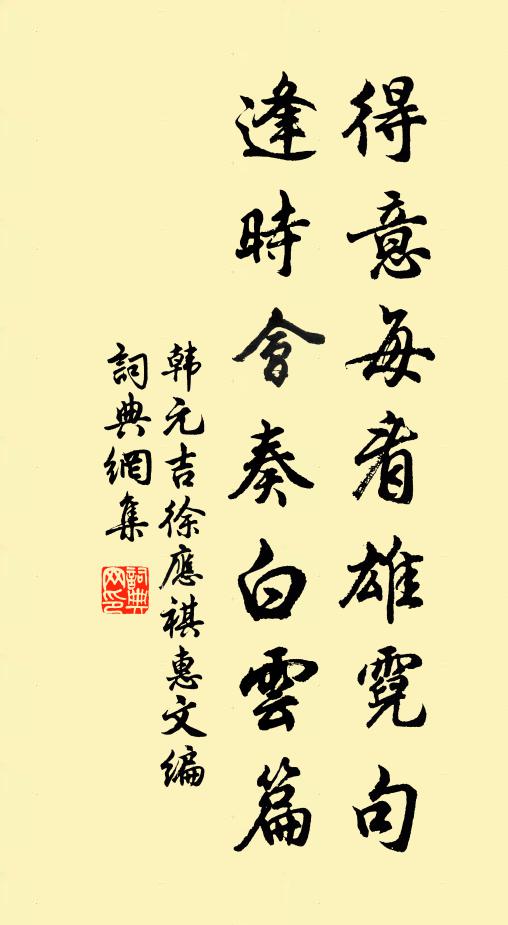 得意每看雄霓句
逢時會奏白雲篇
韩元吉徐應祺惠文編
詞典網集
詞典网印